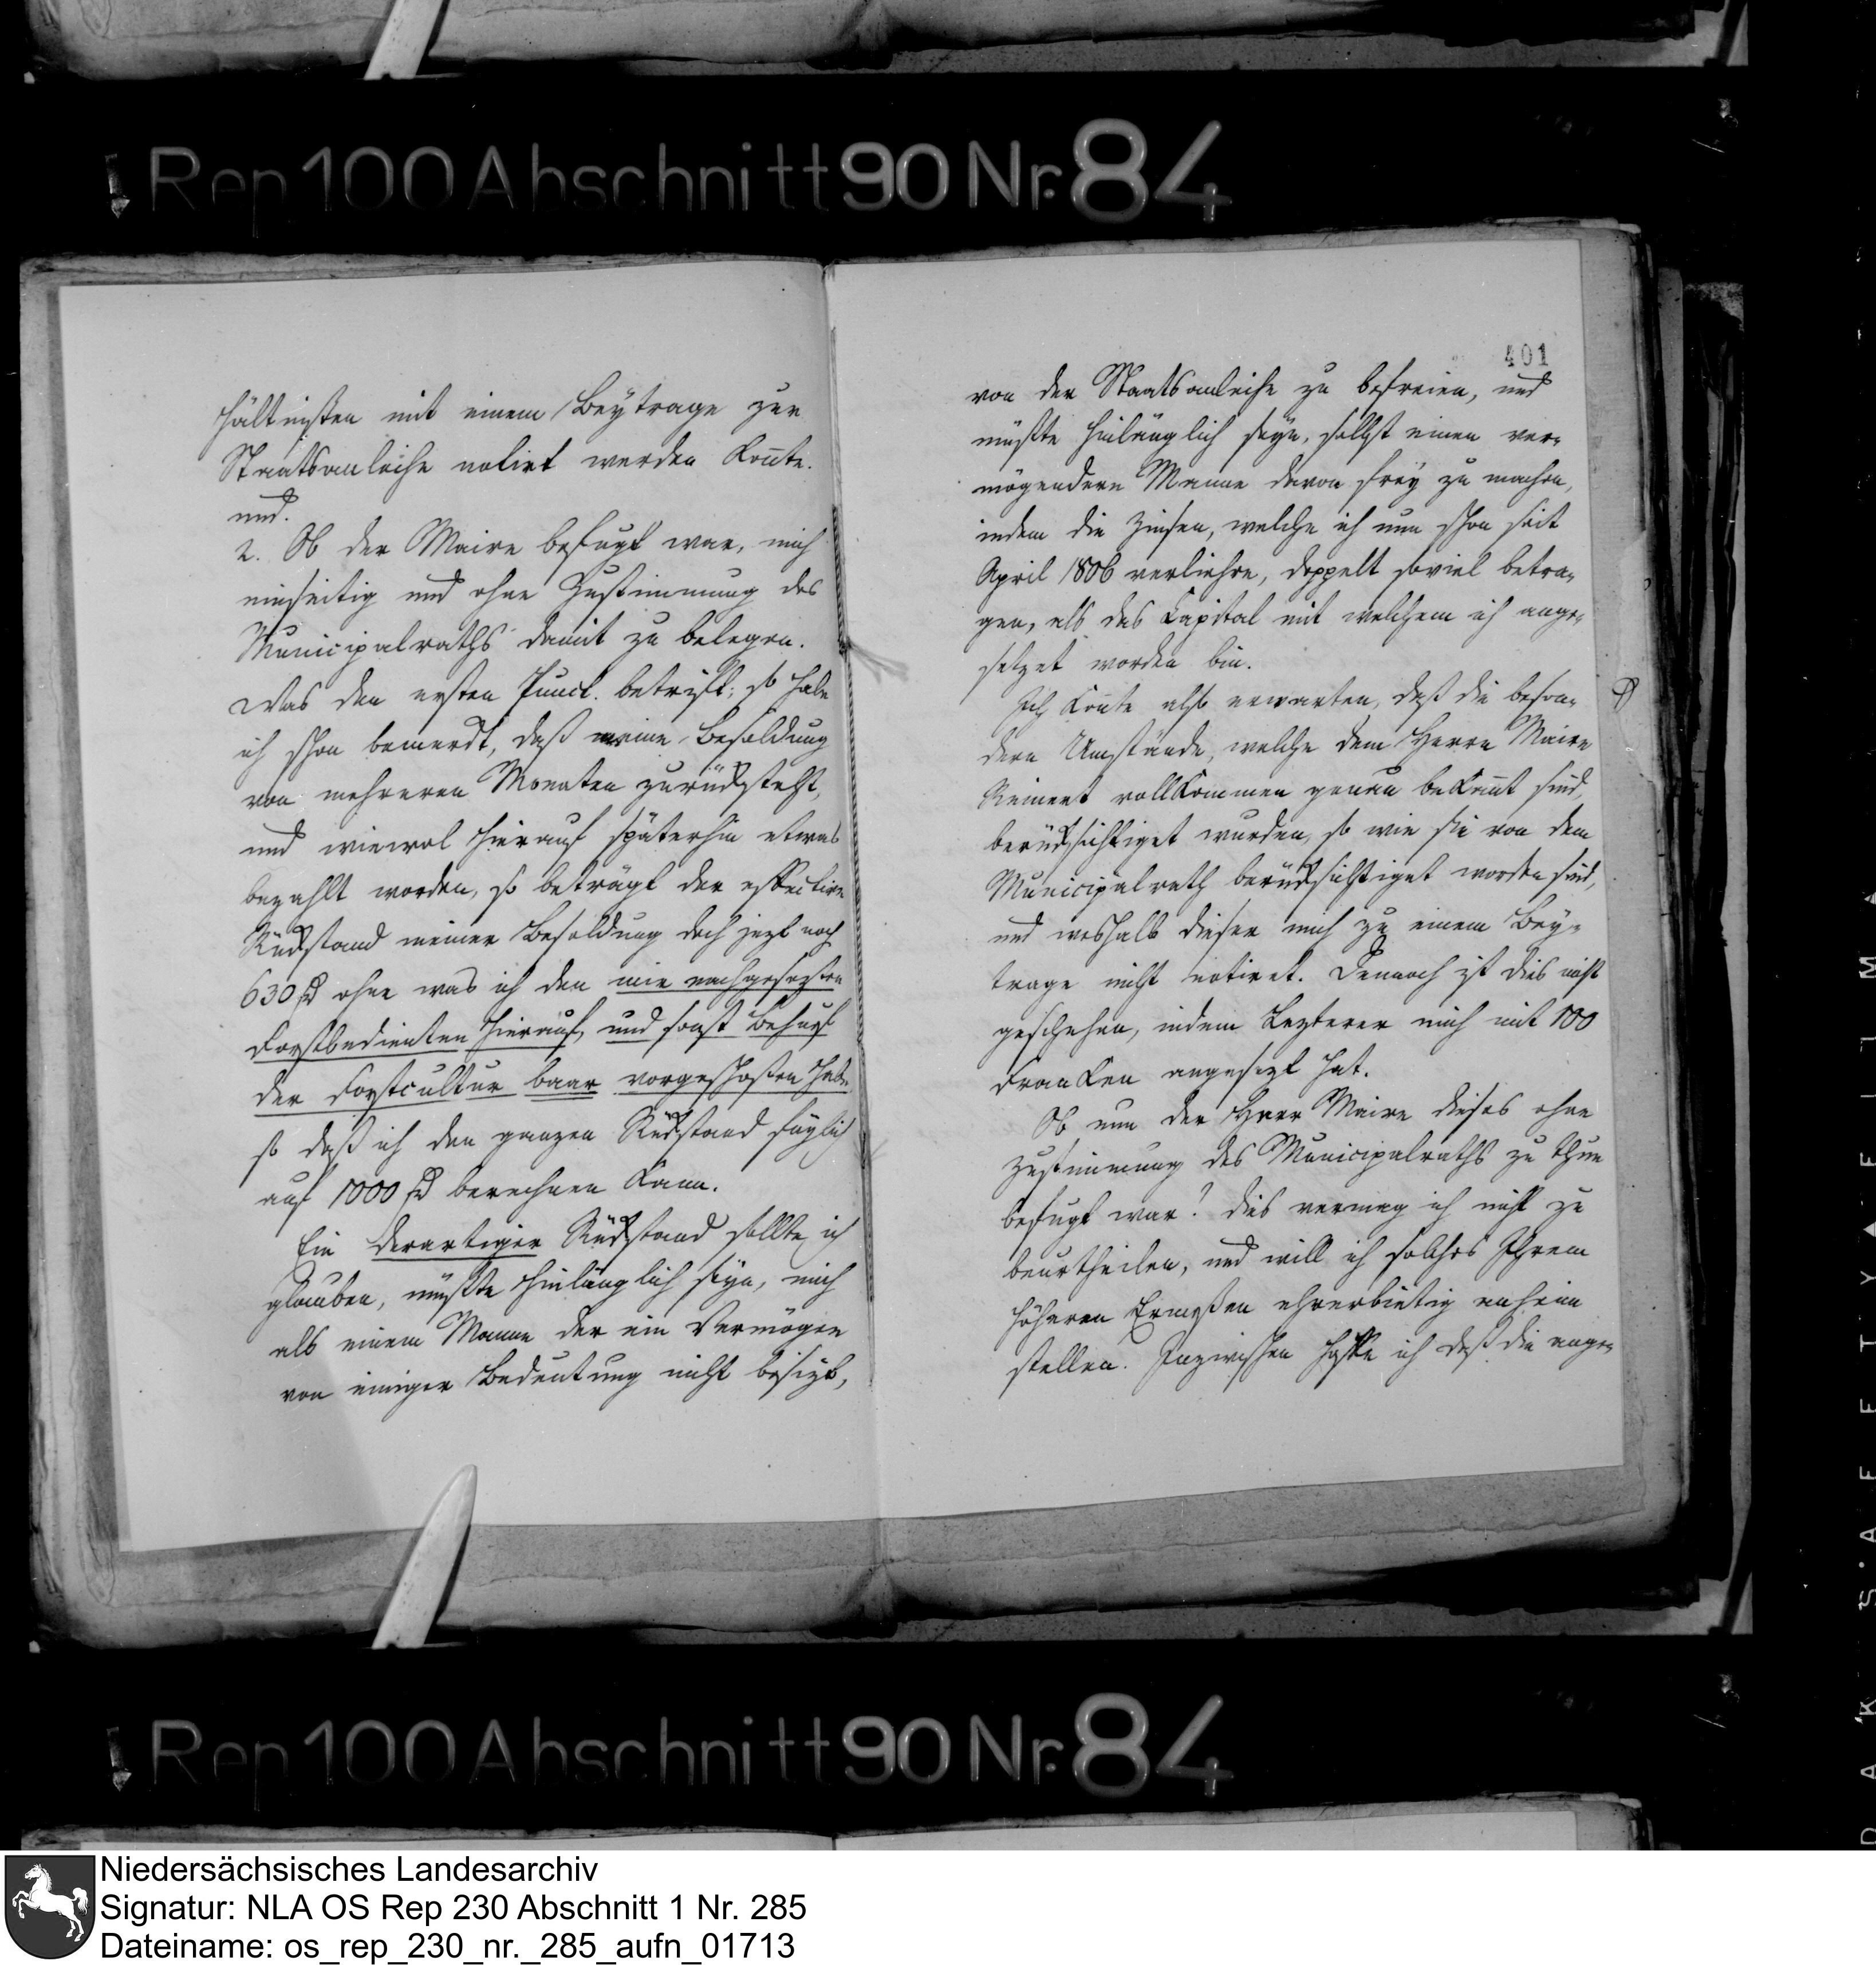 Rep 100 Abschnitt 90 Nr. 84
hältnißen mit einem Beytrage zur
Staatsanleihe notirt werden konte.
und.
2. Ob der Maire befugt war, mich
einseitig und ohne Zustimmung des
Municipalraths damit zu belegen.
Was den ersten Punct. betrifft; so habe
ich schon bemerckt, daß meine Besoldung
von mehreren Monaten zurücksteht,
und wiewol hierauf späterhin etwas
bezahlt worden, so beträgt der effective
Rückstand meiner Besoldung doch jezt noch
630 ohne was ich den mir nachgesezten
Forstbedienten hierauf, und sonst Behuf
der Forstcultur baar vorgeschoßen habe
so daß ich den ganzen Rückstand füglich
auf 1000 berechnen kann.
Ein derartiger Rückstand sollte ich
glauben, müßte hinlänglich seyn, mich
als einem Manne der ein Vermögen
von einiger Bedeutung nicht besizt,
401
von der Staatsanleihe zu befreien, und
müßte hinlänglich seyn, selbst einen ver-
mögendern Manne davon frey zu machen,
indem die Zinsen, welche ich nun schon seit
April 1806 verliehre, doppelt soviel betra-
gen, als das Capital mit welchem ich ange-
setzet worden bin.
Ich konte also erwarten, daß die beson-
dern Umstände, welche dem Herrn Maire
Reinert vollkommen genau bekannt sind,
berücksichtiget wurden, so wie sie von dem
Municipalrath berücksichtiget worden sind,
und weshalb dieser mich zu einem Bey-
trage nicht notiret. Dennoch ist dies nicht
geschehen, indem Lezterer mich mit 100
Francken angesezt hat.
Ob nun der Herr Maire dieses ohne
Zustimmung des Municipalraths zu thun
befugt war? dies vermag ich nicht zu
beurtheilen, und will ich solches Ihrem
höheren Ermeßen ehrerbietig anheim
stellen. Inzwischen hoffe ich daß die ange-
Rep 100 Abschnitt 90 Nr. 84
Niedersächsisches Landesarchiv
Signatur: NLA OS Rep 230 Abschnitt 1 Nr. 285
Dateiname: os_rep_230_nr._285_aufn_01713